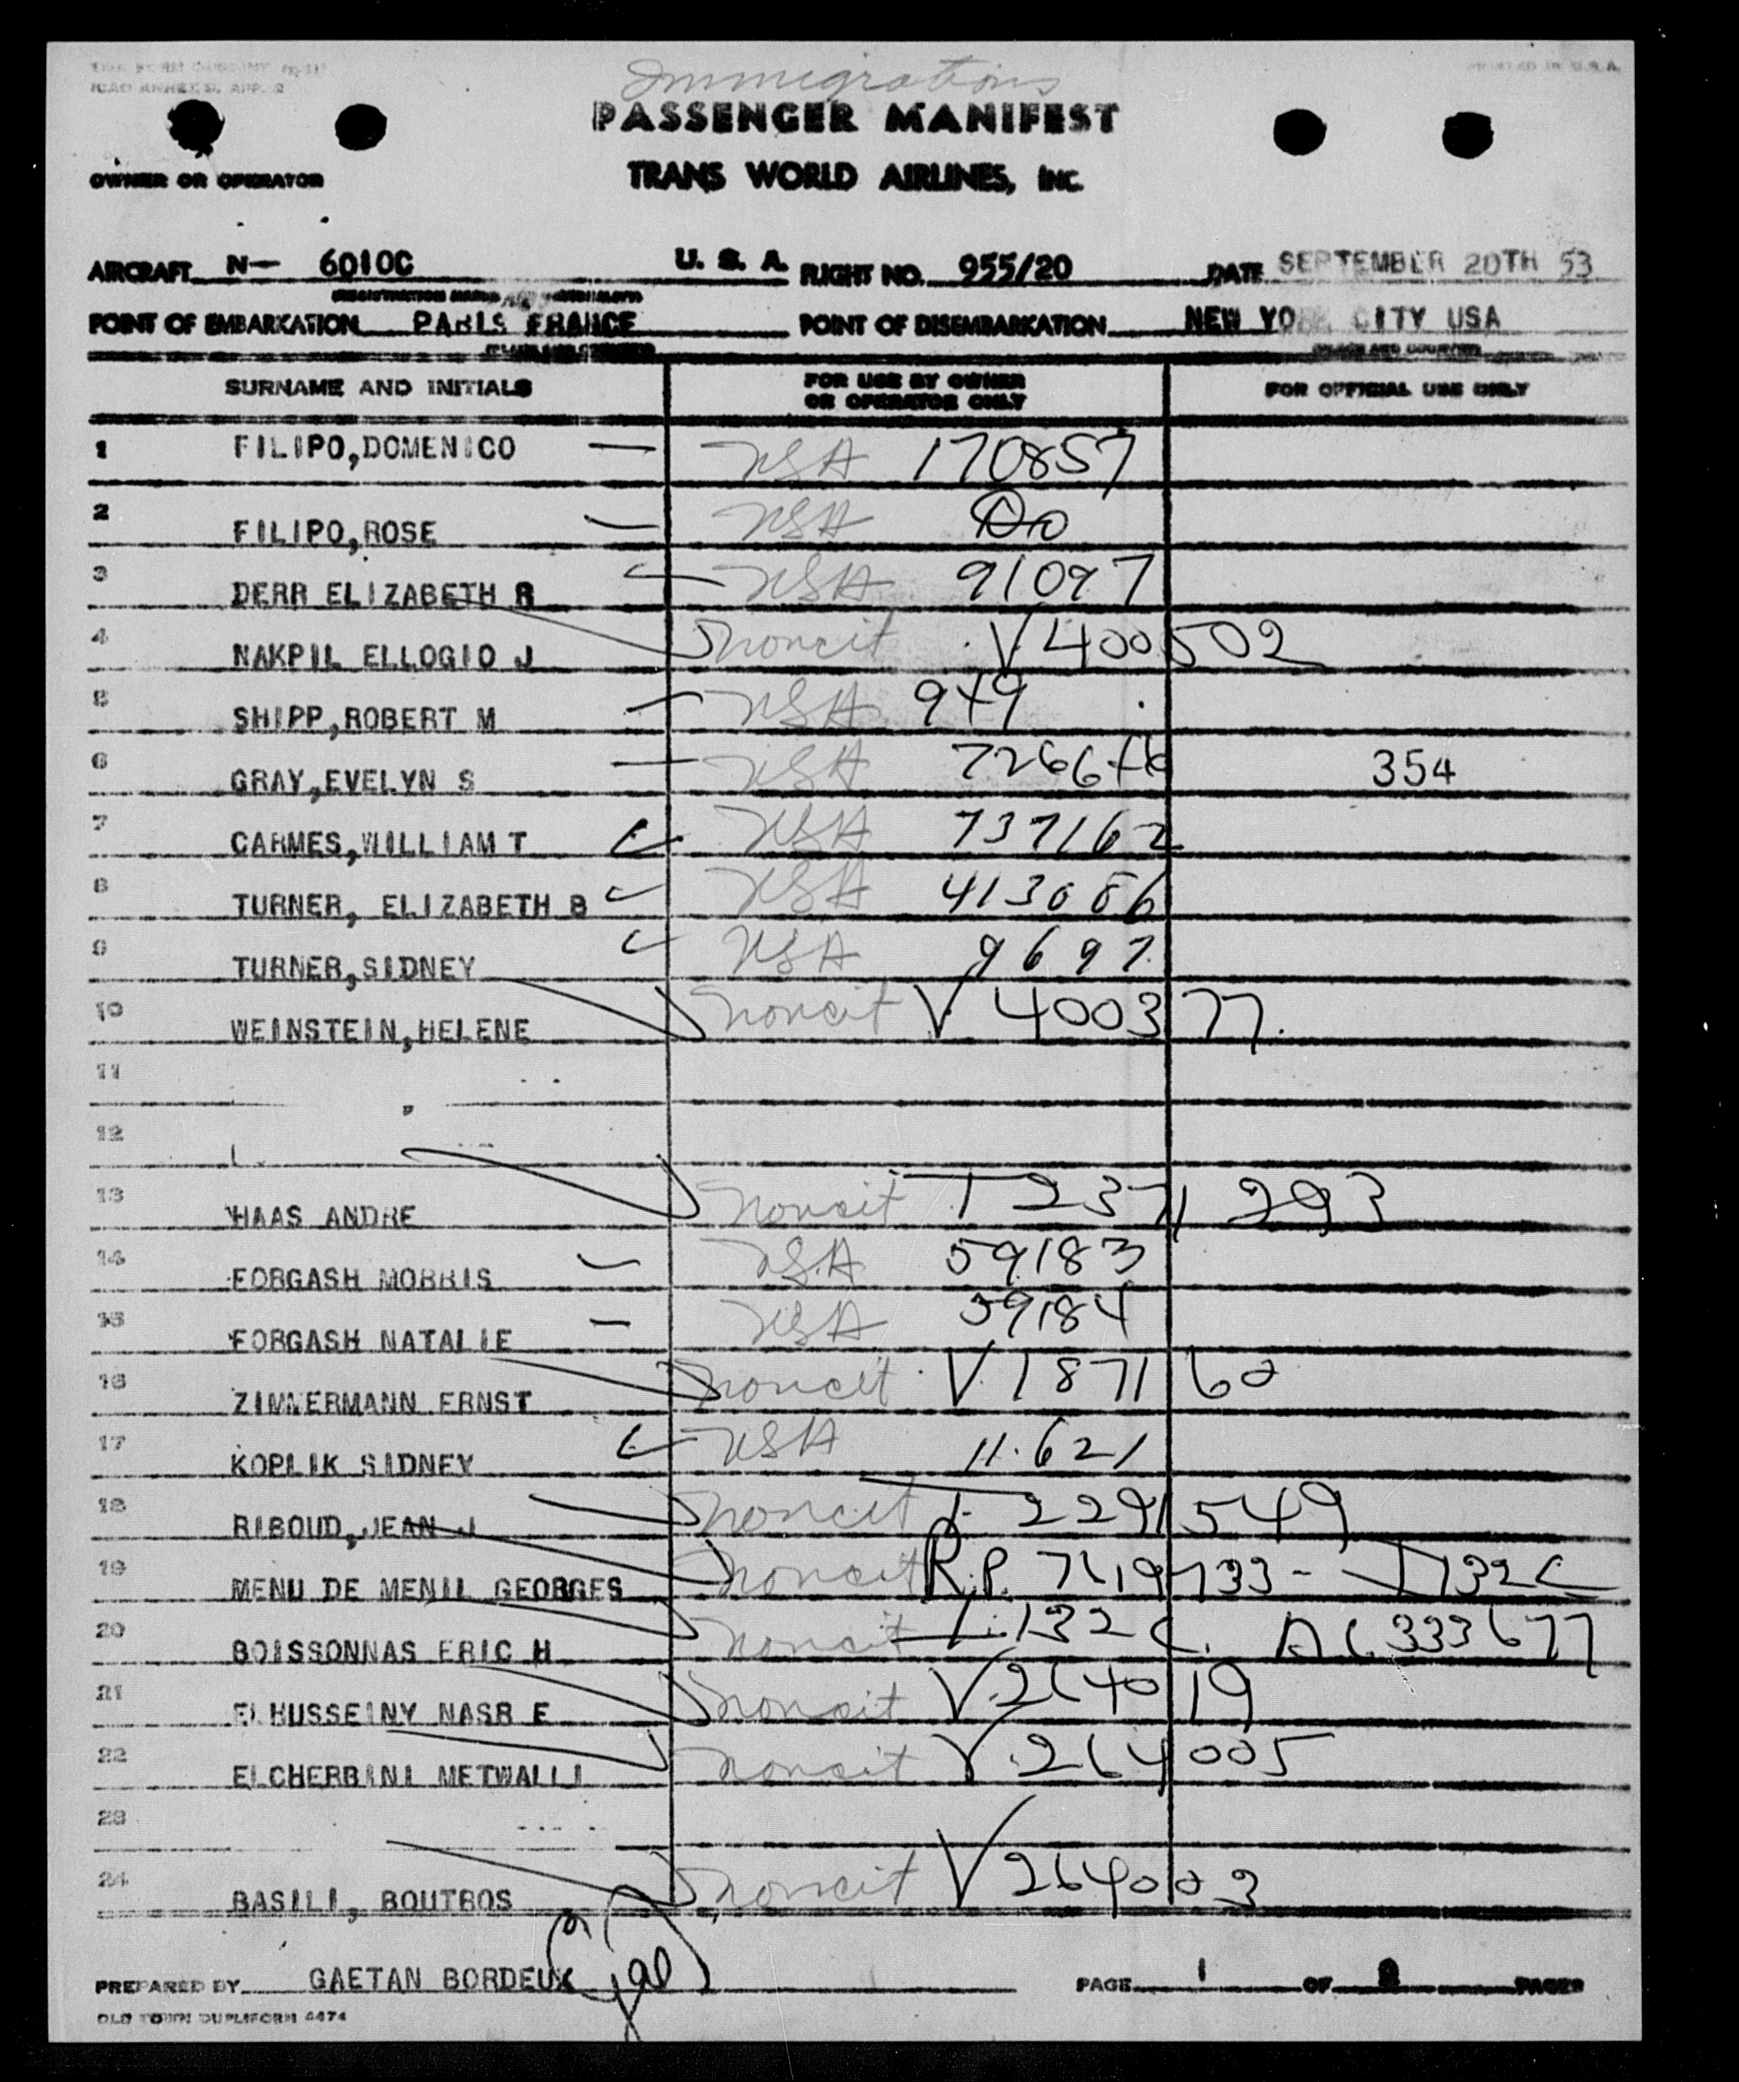 Immigrations
PRINTED IN U.S.A.
ICAO ANNEX 9, APP. 2
PASSENGER MANIFEST
OWNER OR OPERATOR TRANS WORLD AIRLINES, INC.
AIRCRAFT N- 6010C U. S. A. FLIGHT NO. 955/20 DATE SEPTEMBER 20TH 53
POINT OF EMBARKATION PARIS FRANCE POINT OF DISEMBARKATION NEW YORK CITY USA
SURNAME AND INITIALS FOR USE BY OWNER OR OPERATOR ONLY FOR OFFICIAL USE ONLY
1 FILIPO,DOMENICO — USA 170857
2 FILIPO,ROSE — USA Do
3 DERR ELIZABETH R USA 91097
4 NAKPIL ELLOGIO J noncit V 400502
5 SHIPP,ROBERT M USA 949
6 GRAY,EVELYN S — USA 354
7 CARMES,WILLIAM T USA 737162
8 TURNER, ELIZABETH B USA 413086
9 TURNER,SIDNEY USA 9697
10 WEINSTEIN,HELENE noncit V 400377.
11
12
13 HAAS ANDRE noncit T 2371293
14 FORGASH MORRIS USA 59183
15 FORGASH NATALIE — USA 59184
16 ZIMMERMANN ERNST noncit V 187160
17 KOPLIK SIDNEY USA 11.621
18 RIBOUD,JEAN J noncit T- 2291549
19 MENU DE MENIL GEORGES noncit R.P. 7619733- T132C
20 BOISSONNAS ERIC H noncit T.132C. A6333677
21 ELHUSSEINY NASR E noncit V.264019
22 ELCHERBINI METWALLI noncit V.264005
23
24 BASILI, BOUTROS noncit V 264003
PREPARED BY GAETAN BORDEUX PAGE 1 OF PAGES
OLD TOWN DUPLIFORM 4474